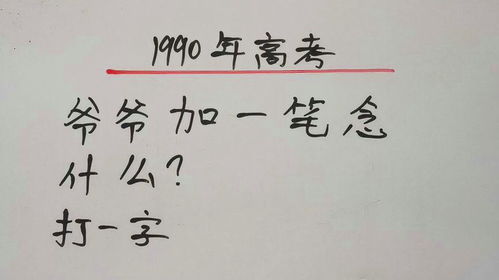 1990年高考
爷爷加一笔念
什么?
打一字